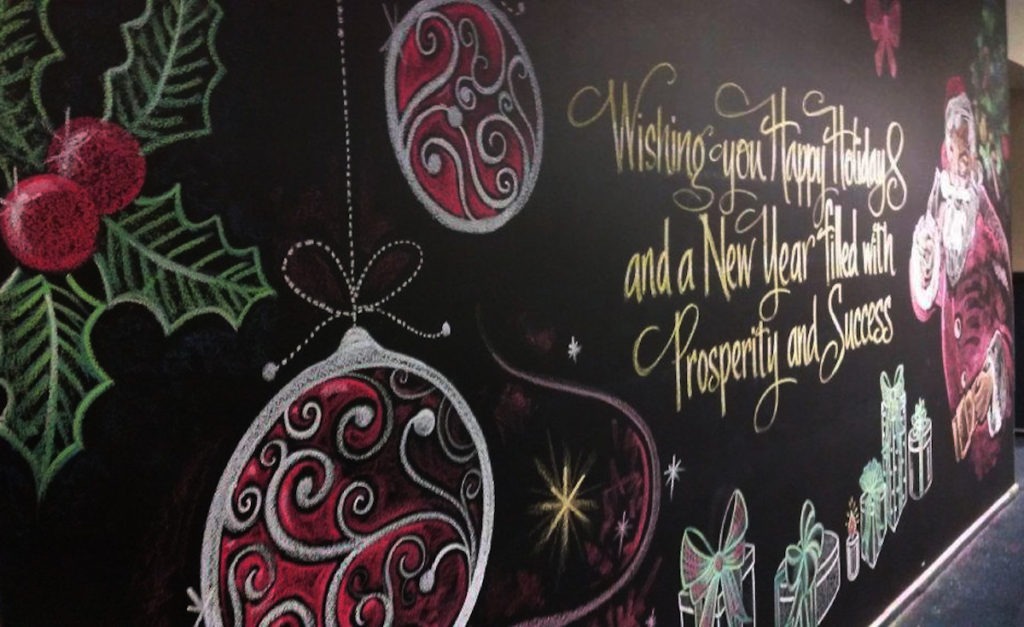 Wishing you Happy Holidays
and a New Year filled with
Prosperity and Success